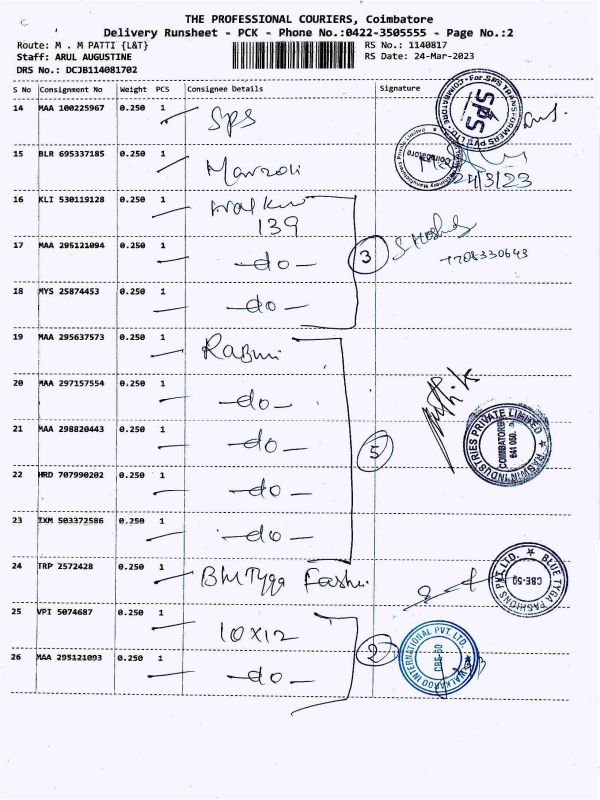 THE PROFESSIONAL COURIERS, Coimbatore
Delivery Runsheet - PCK - Phone No.:0422-3505555 - Page No.:2
Route: M . M PATTI {L&T} RS No.: 1140817
Staff: ARUL AUGUSTINE RS Date: 24-Mar-2023
DRS No.: DCJB114081702
S No Consignment No Weight PCS Consignee Details Signature
14 MAA 100225967 0.250 1 SPS
FOR SPS TRANSFORMERS PVT LTD. COIMBATORE
SPS
15 BLR 695337185 0.250 1
Coimbatore
24/3/23
16 KLI 530119128 0.250 1
139
17 MAA 295121094 0.250 1 -do- 3
7708330643
18 MYS 25874453 0.250 1 -do-
19 MAA 295637573 0.250 1
20 MAA 297157554 0.250 1 -do-
21 MAA 298820443 0.250 1 -do- 5
INDUSTRIES PRIVATE LIMITED
COIMBATORE
641 050.
22 HRD 707990202 0.250 1 -do-
23 IXM 503372586 0.250 1 -do-
24 TRP 2572428 0.250 1
BLUE TYGA FASHIONS PVT. LTD.
CBE-50
25 VPI 5074687 0.250 1 10X12
2
WALKAROO INTERNATIONAL PVT. LTD.
CBE-50
26 MAA 295121093 0.250 1 -do-